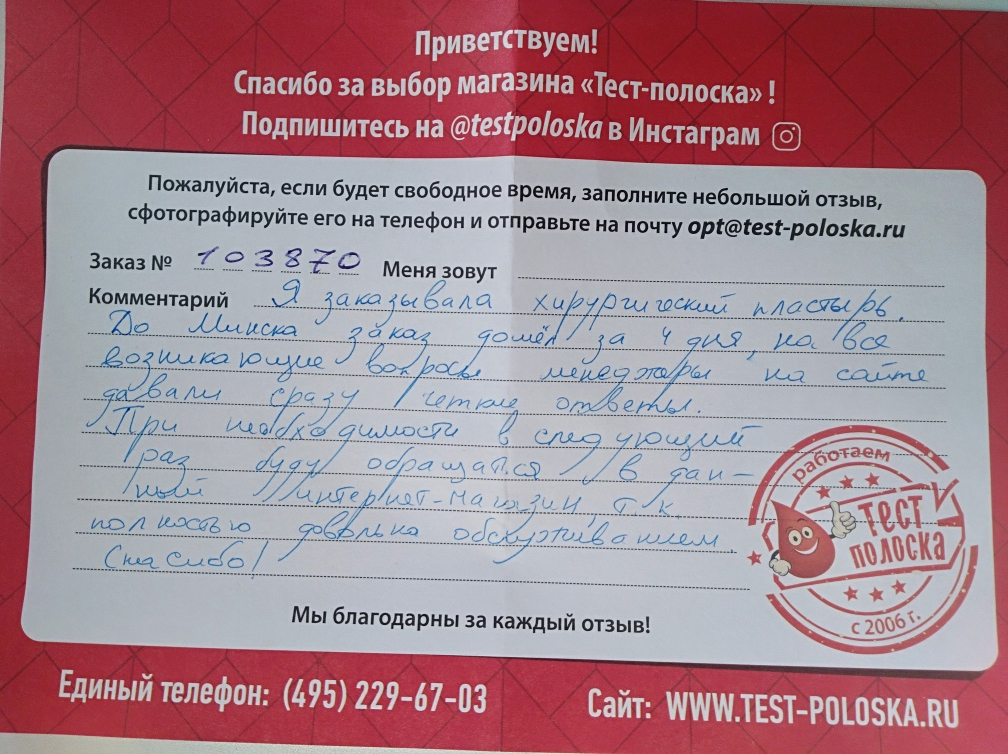 Приветствуем!
Спасибо за выбор магазина «Тест-полоска» !
Подпишитесь на @testpoloska в Инстаграм
Пожалуйста, если будет свободное время, заполните небольшой отзыв,
сфотографируйте его на телефон и отправьте на почту opt@test-poloska.ru
Заказ № 103870 Меня зовут
Комментарий Я заказывала хирургический пластырь.
До Минска заказ дошёл за 4 дня, на все
возникающие вопросы менеджеры на сайте
давали сразу четкие ответы.
При необходимости в следующий
раз буду обращаться в дан-
ный интернет-магазин, т.к.
полностью довольна обслуживанием.
Спасибо!
работаем
ТЕСТ
ПОЛОСКА
с 2006 г.
Мы благодарны за каждый отзыв!
Единый телефон: (495) 229-67-03 Сайт: WWW.TEST-POLOSKA.RU